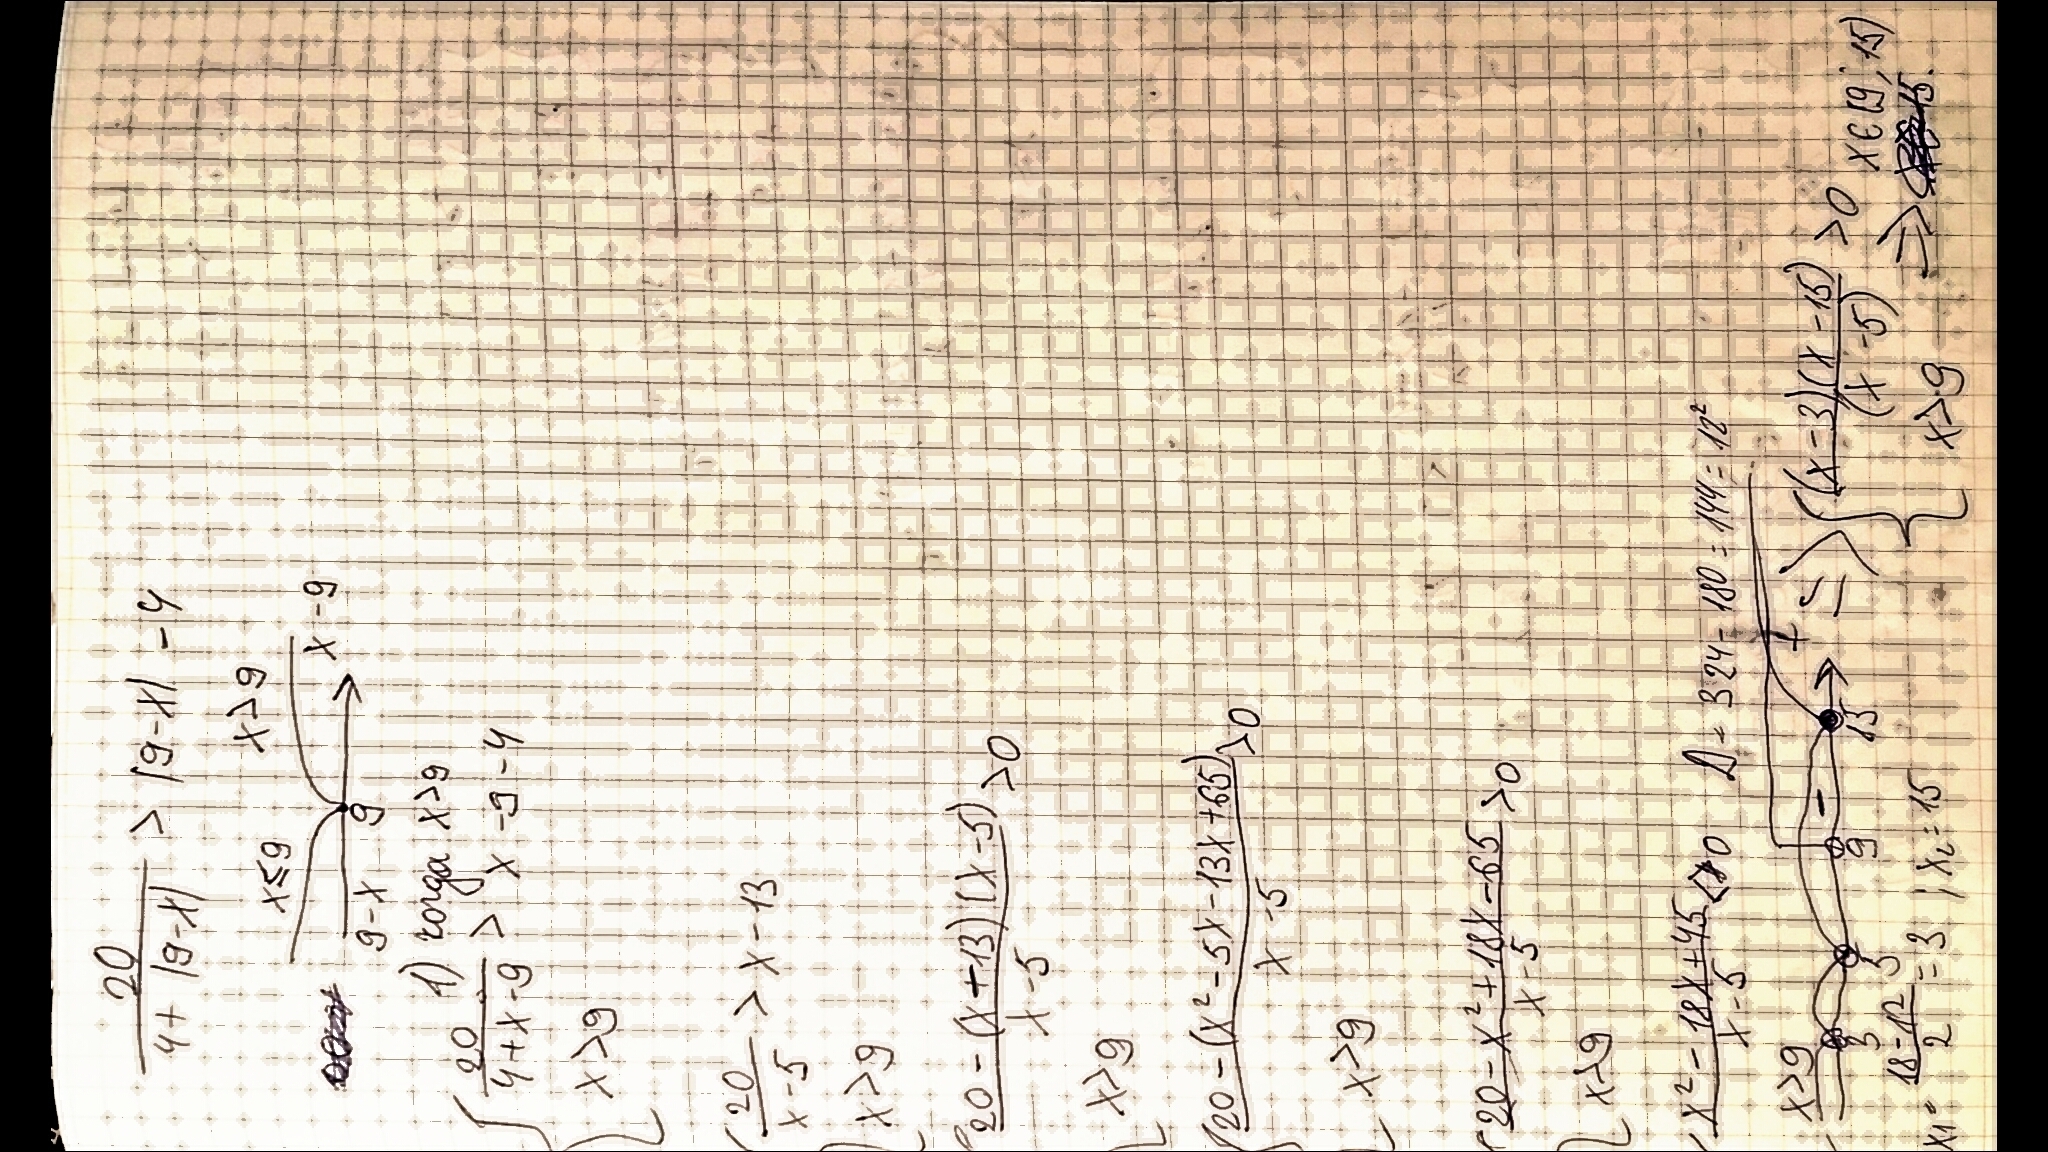 20/(4+|9-x|) > |9-x| -4
x≤9 x>9
9-x 9 x-9
1) когда x>9
{ 20/(4+x-9) > x-9-4
x>9
{ 20/(x-5) > x-13
x>9
{ (20-(x+13)(x-5))/(x-5) >0
x>9
{ (20-(x²-5x-13x+65))/(x-5) >0
x>9
{ (20-x²+18x-65)/(x-5) >0
x>9
{ (x²-18x+45)/(x-5) <0 D = 324-180=144=12²
x>9
3 5 9 - 15 + => { ((x-3)(x-15))/(x-5) >0 x∈(9;15)
x>9 =>
x₁= (18-12)/2 = 3 ; x₂=15